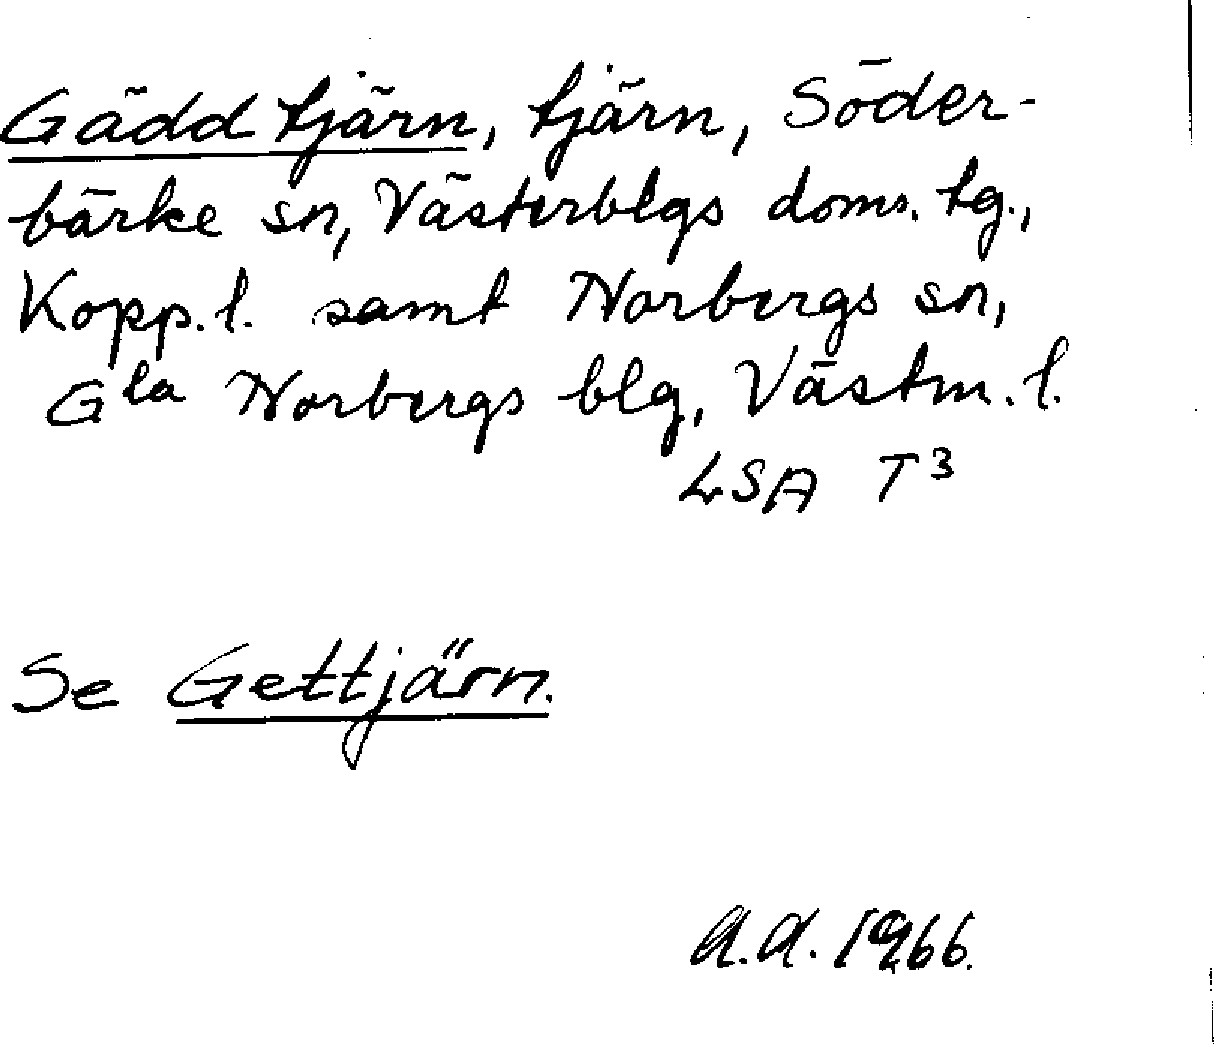 Gäddtjärn, tjärn, Söder-
bärke sn, Västerblgs doms. tg.,
Kopp. l. samt Norbergs sn,
Gla Norbergs blg, Västm. l.
LSA T3
Se Gettjärn.
A.A. 1966.